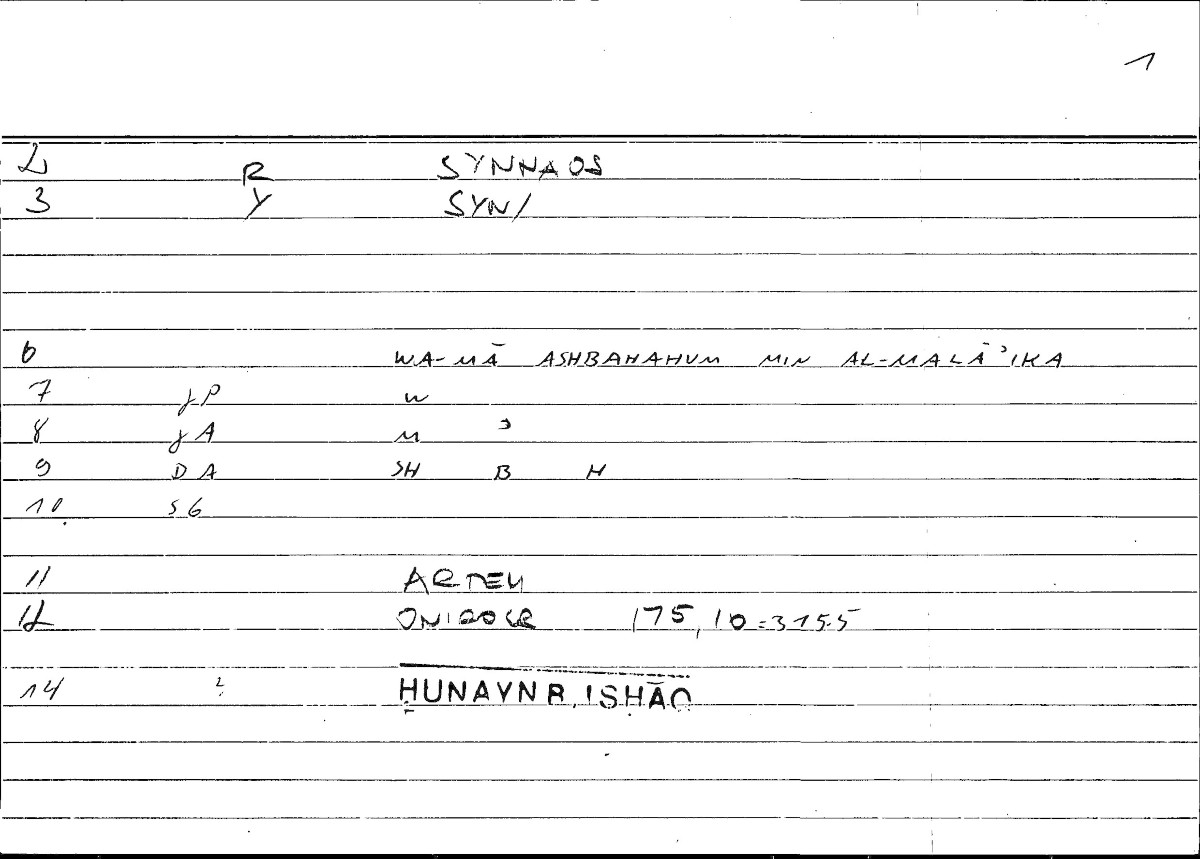 1
2 R SYNNAOS
3 Y SYN/
6 WA-MĀ ASHBAHAHUM MIN AL-MALĀʾIKA
7 JP W
8 JA M ʾ
9 DA SH B H
10 SG
11 ARTEM
12 ONIROCR 175,10=315.5
14 2 ḤUNAYN B. ISḤĀQ